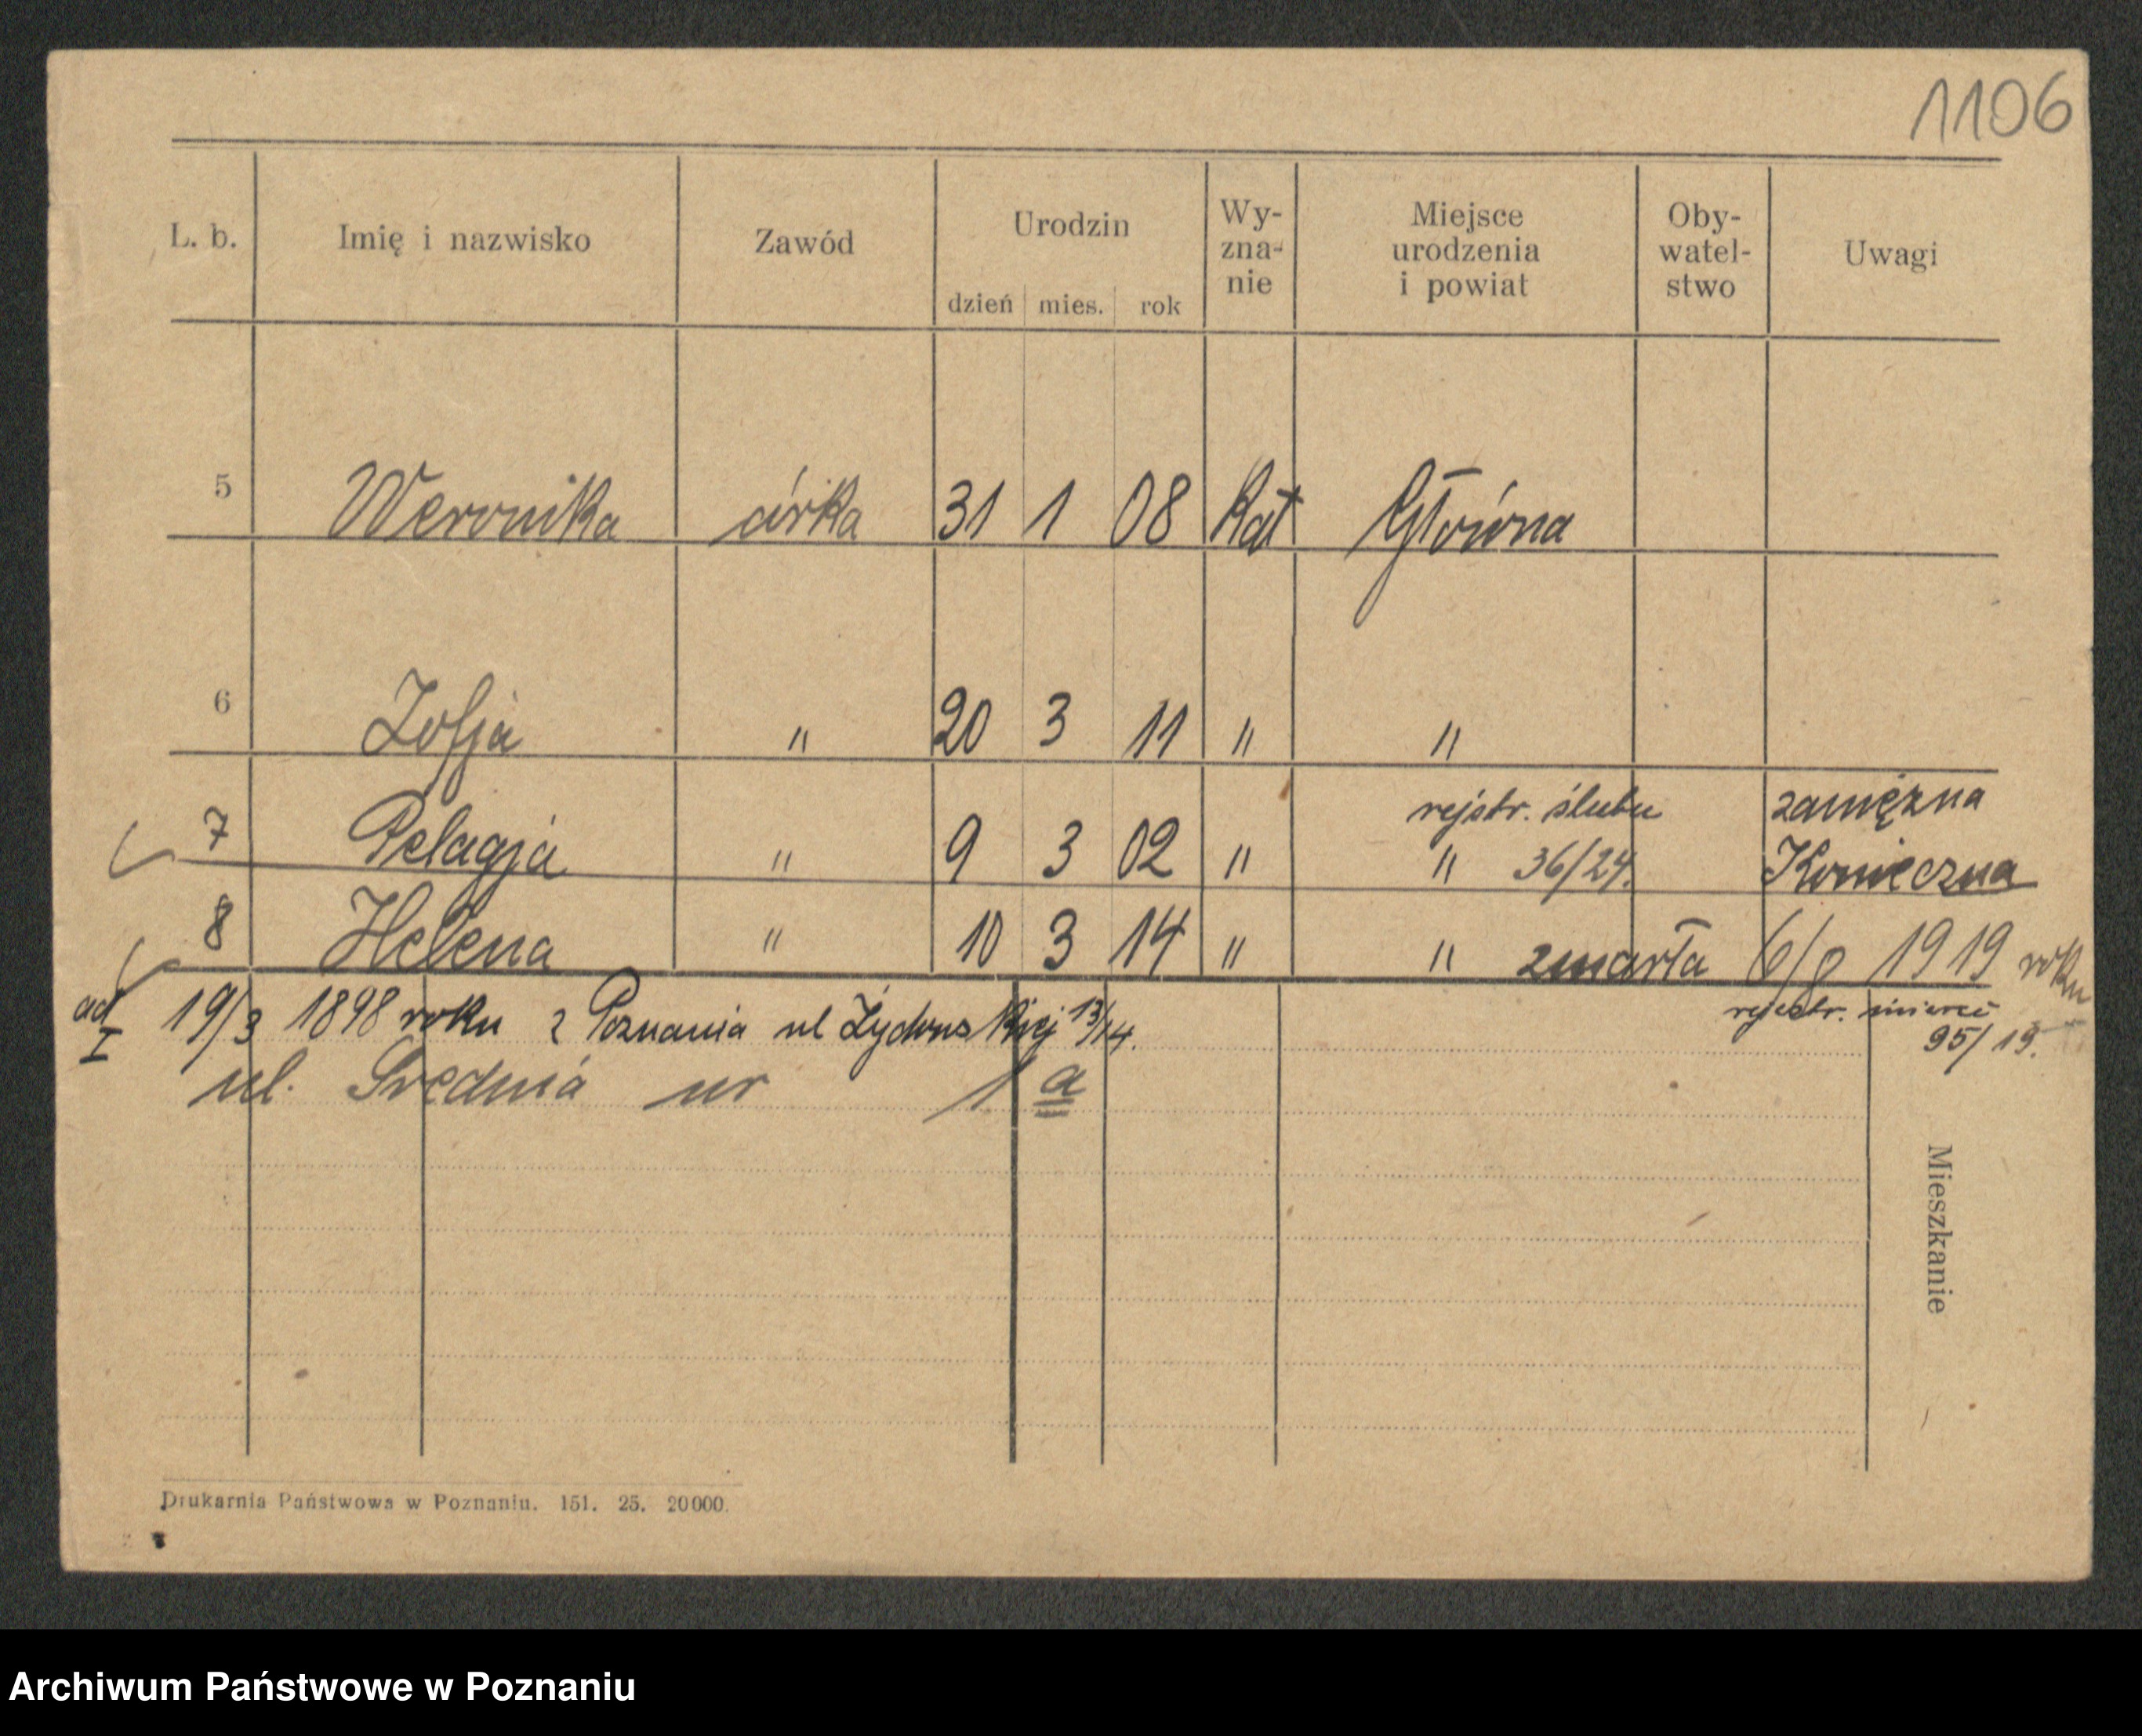 1106
L. b. Imię i nazwisko Zawód Urodzin dzień mies. rok Wy- zna- nie Miejsce urodzenia i powiat Oby- watel- stwo Uwagi
5 Weronika córka 31 1 08 Kat Główna
6 Zofja " 20 3 11 " "
rejstr. ślubu zamężna
7 Pelagja " 9 3 02 " " 36/24. Konieczna
8 Helena " 10 3 14 " " zmarła 6/9 1919 roku
ad I 19/3 1898 roku z Poznania ul Żydowskiej 13/14.
rejestr. śmierci
95/19.
ul. Średnia nr 1 a
Mieszkanie
Drukarnia Państwowa w Poznaniu. 151. 25. 20000.
Archiwum Państwowe w Poznaniu